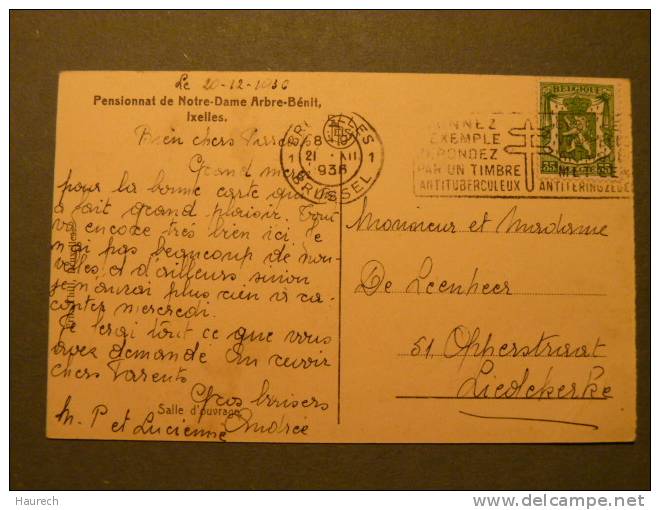 Le 20-12-1936
Pensionnat de Notre-Dame Arbre-Bénit,
Ixelles.
BRUXELLES
1 21 XII 1
936
BRUSSEL
DONNEZ
EXEMPLE
REPONDEZ
PAR UN TIMBRE
ANTITUBERCULEUX
ANTITERINGZEGEL
BELGIQUE
35
Bien chers Parents
Grand merci
pour la bonne carte qui
a fait grand plaisir. Tout
va encore très bien ici. Je
n'ai pas beaucoup de nou-
velles et d'ailleurs sinon
je n'aurai plus rien à ra-
conter mercredi.
Je ferai tout ce que vous
avez demandé. Au revoir
chers Parents
Gros baisers
M. P et Lucienne Andrée
Salle d'ouvrage
Monsieur et Madame
De Leenheer
51, Opperstraat
Liedekerke
Haurech
http://www.delcampe.net